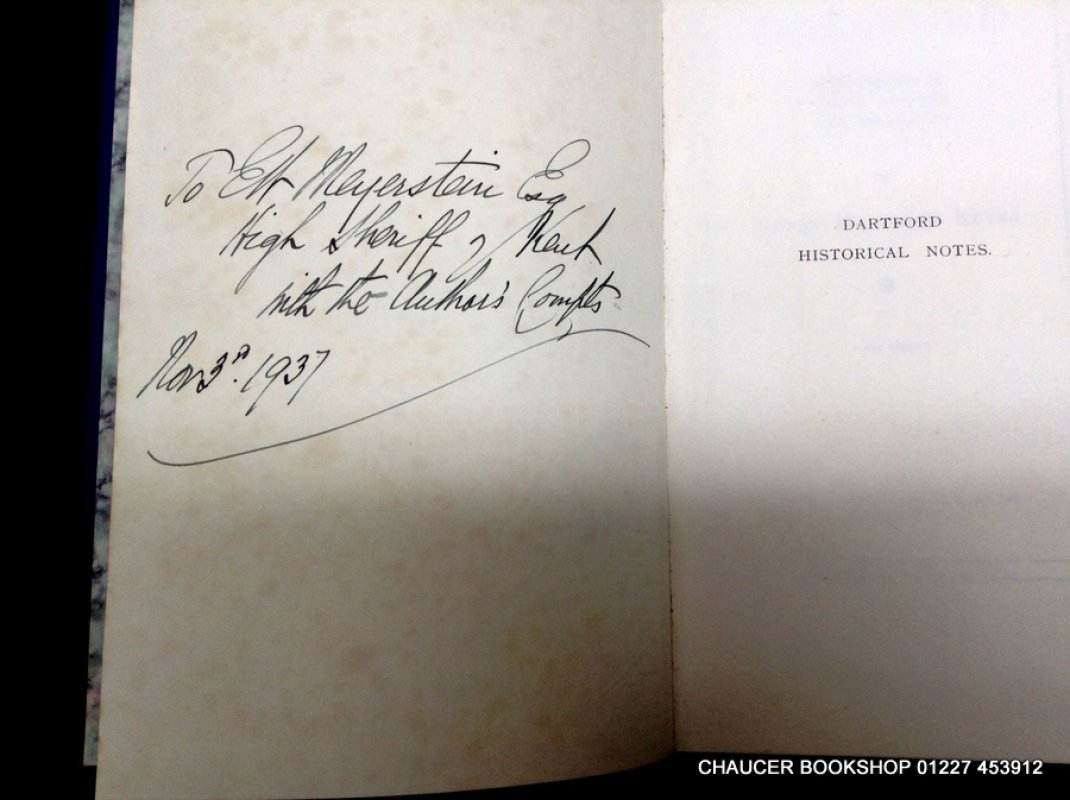 To EW Meyerstein Esq
High Sheriff of Kent
with the Author's Compts
Nov 3rd. 1937
DARTFORD
HISTORICAL NOTES.
CHAUCER BOOKSHOP 01227 453912